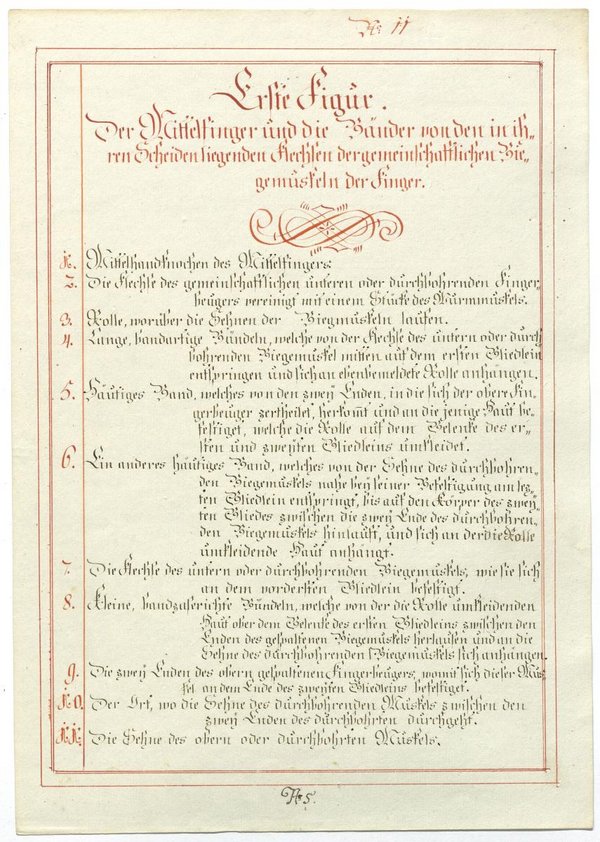 No 11
Erste Figur.
Der Mittelfinger und die Bänder von den in ih=
ren Scheiden liegenden Flechsen der gemeinschaftlichen Bie=
gemuskeln der Finger.
1. Mittelhandknochen des Mittelfingers.
2. Die Flechse des gemeinschaftlichen unteren oder durchbohrenden Finger
beugers vereinigt mit einem Stücke des Wurmmuskels.
3. Rolle, worüber die Sehnen der Biegmuskeln laufen.
4. Lange, bandartige Bündeln, welche von der Flechse des untern oder durch
bohrenden Biegemuskel mitten auf dem ersten Gliedlein
entspringen und sich an ebenbemeldete Rolle anhängen.
5. Häutiges Band, welches von den zwey Enden, in die sich der obere Fin=
gerbeuger zertheilet, herkomt und an die jenige Haut be=
festiget, welche die Rolle auf dem Gelenke des er=
sten und zweyten Gliedleins umkleidet.
6. Ein anderes häutiges Band, welches von der Sehne des durchbohren=
den Biegemuskels nahe bey seiner Befestigung am lez=
ten Gliedlein entspringt, bis auf den Körper des zwey=
ten Gliedes zwischen die zwey Ende des durchbohren=
den Biegemuskels hinlauft, und sich an der die Rolle
umkleidende Haut anhängt.
7. Die Flechse des untern oder durchbohrenden Biegemuskels, wie sie sich
an dem vordersten Gliedlein befestigt.
8. Kleine, bandzaserichte Bündeln, welche von der die Rolle umkleidenden
Haut ober dem Gelenke des ersten Gliedleins zwischen den
Enden des gespaltenen Biegemuskels herlaufen und an die
Sehne des durchbohrenden Biegemuskels sich anhängen.
9. Die zwey Enden des obern gespaltenen Fingerbeugers, womit sich dieser Mus
kel an dem Ende des zweyten Gliedleins befestiget.
10. Der Ort, wo die Sehne des durchbohrenden Muskels zwischen den
zwey Enden des durchbohrten durchgeht.
11. Die Sehne des obern oder durchbohrten Muskels.